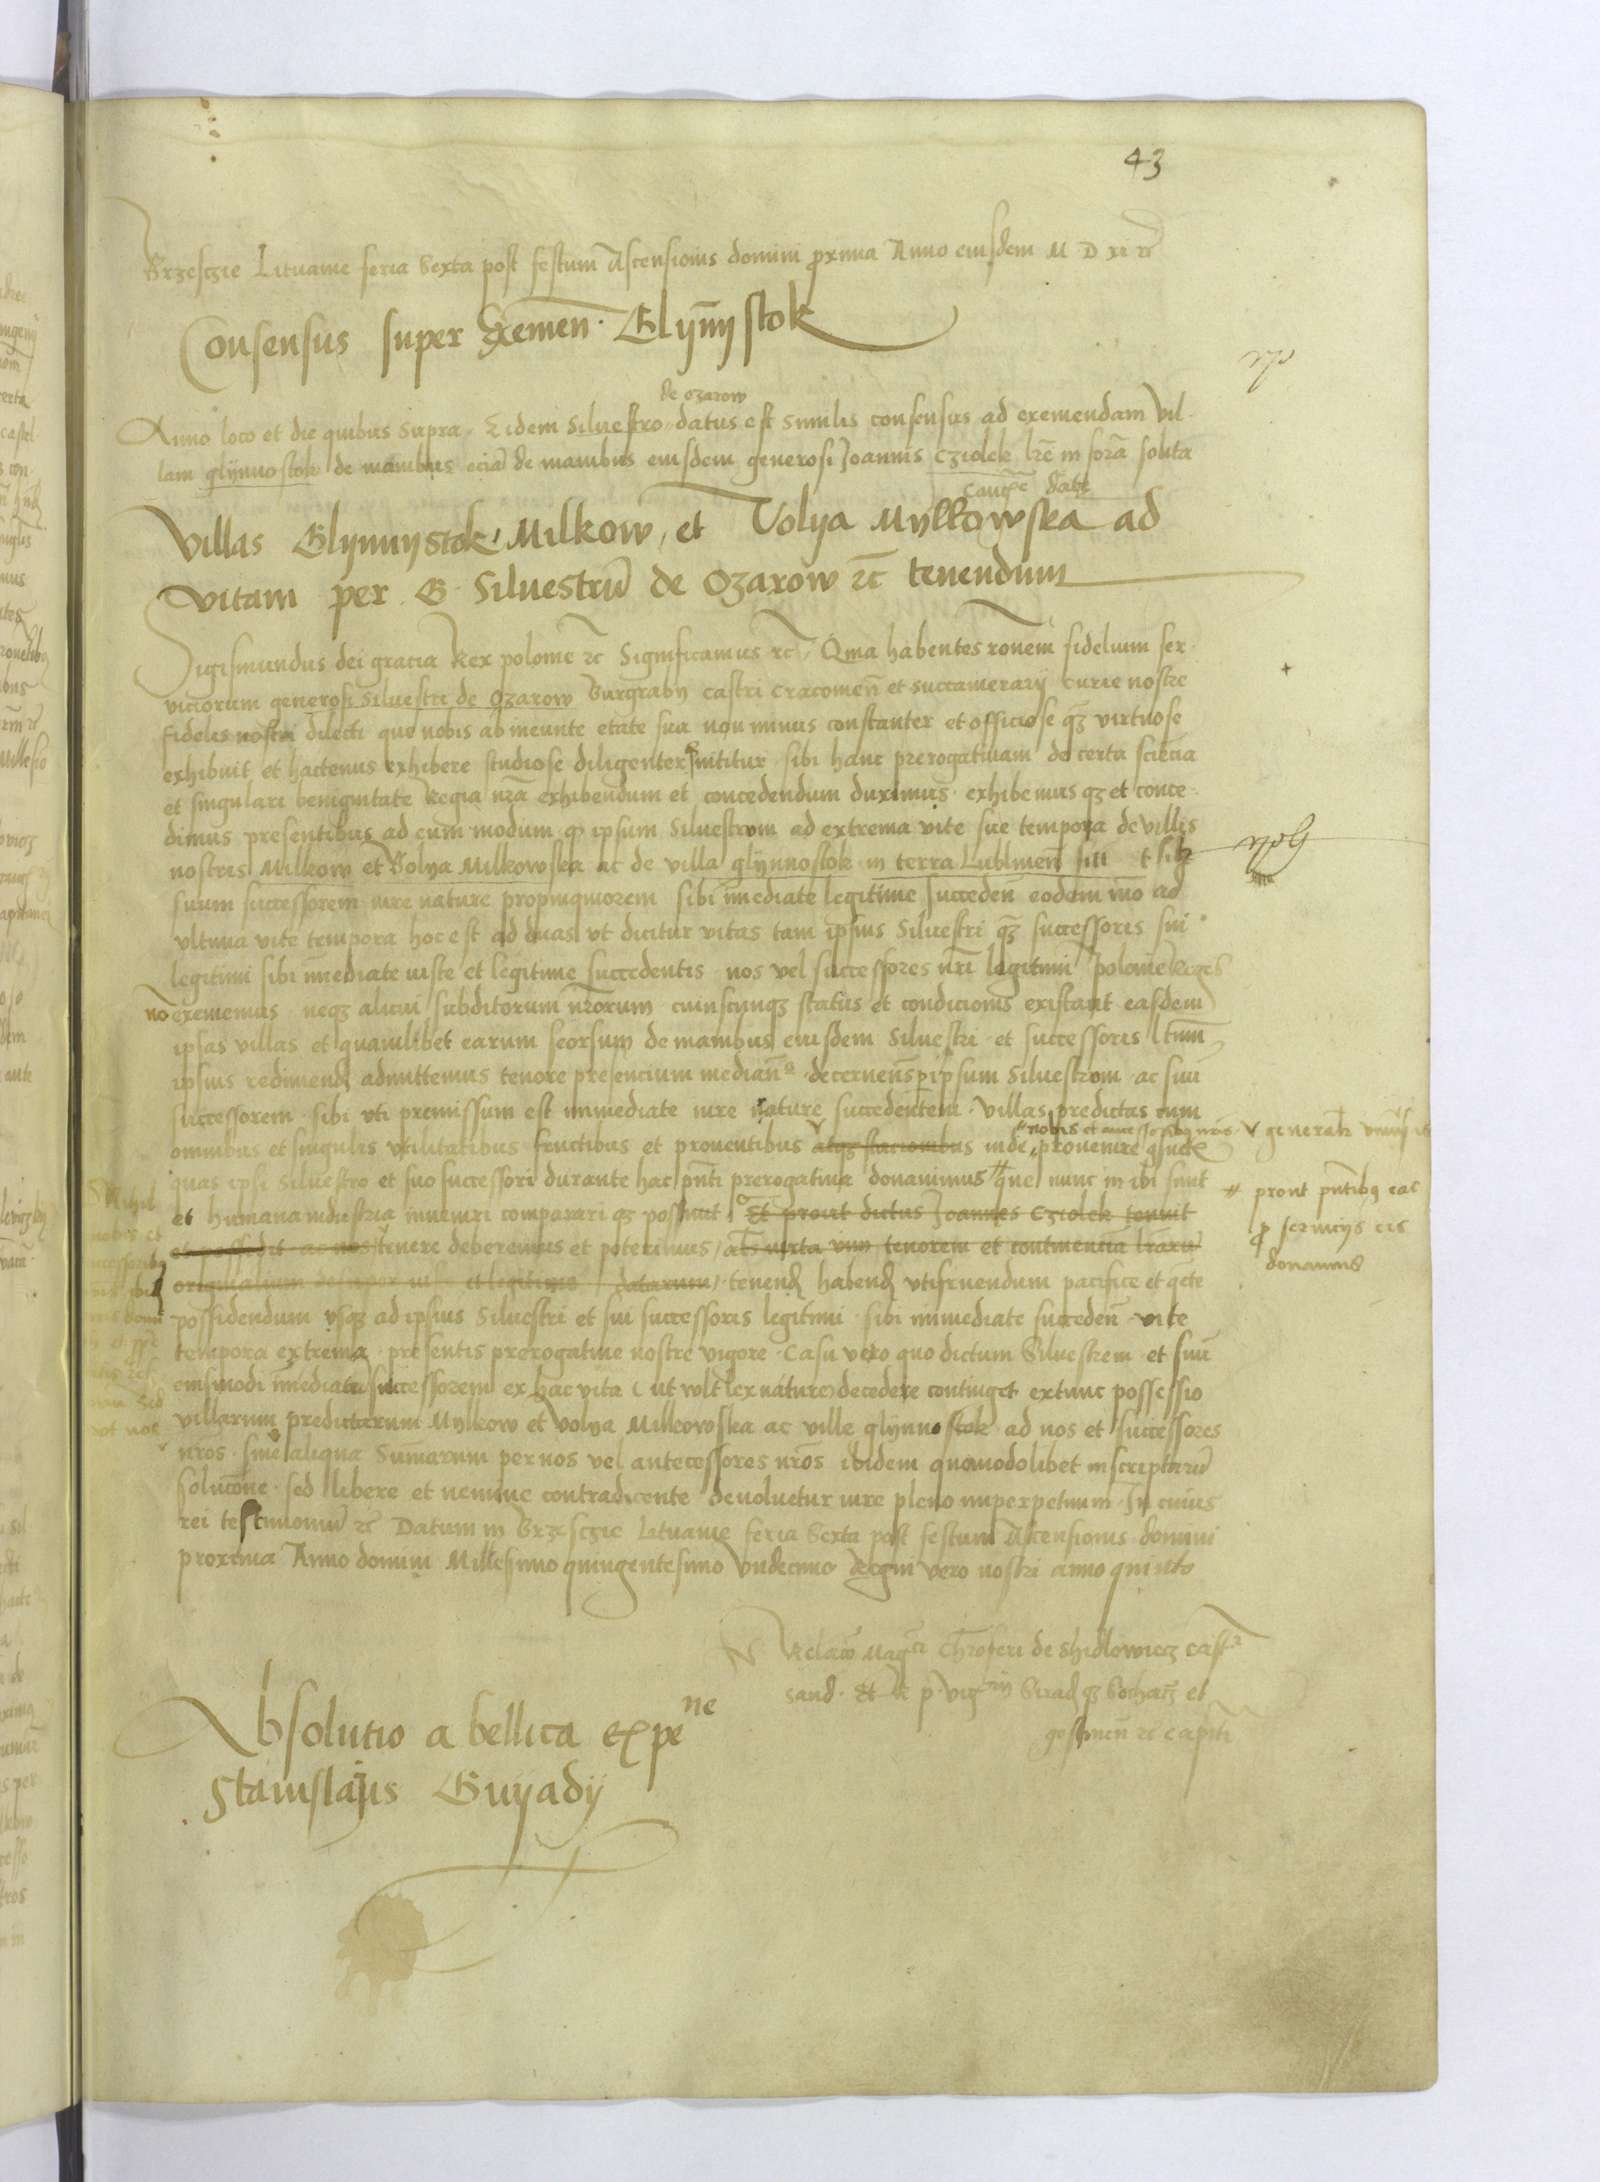 43
Brzesczie Lituanie feria Sexta post festum Ascensionis domini proxima Anno eiusdem M D xi rc
Consensus super Exemen. Glynnystok
de ozarow
Anno loco et die quibus supra, Eidem Siluestro datus est similis consensus ad exemendam vil-
lam glynnostok de manibus ecia de manibus eiusdem generosi Joannis Cziolek lre in fora solita
date
Villas Glynnystok, Milkow, et Volya Mylkowska ad
vitam per G. Siluestru de Ozarow rc tenendum
Sigismundus dei gracia Rex polonie rc Significamus rc, Qma habentes ronem fidelium ser-
viciorum generosi Siluestri de Ozarow Burgrabij castri Cracouien et succamerarij curie nostre
fidelis nostri dilecti que nobis ab ineunte etate sua non minus constanter et officiose qz virtuose
exhibuit et hactenus exhibere studiose diligenter nititur sibi hanc prerogatiuam de certa sciecia
et singulari benignitate Regia nra exhibendum et concedendum duximus. exhibemus qz et conce-
dimus presentibus ad eum modum q ipsum Siluestrum ad extrema vite sue tempora de villis
nostris Milkow et Volya Milkowska ac de villa glynnostok in terra Lublinen siti
suum successorem iure nature propinquiorem sibi imediate legitime succeden eodem mo ad
vltima vite tempora hoc est ad duas vt dicitur vitas tam ipsius Siluestri qz successoris sui
legitimi sibi imediate iuste et legitime succedentis nos vel successores nri legitimi polonie Reges
no exememus neqz alicui subditorum nrorum cuiuscunqz status et condicionis existant easdem
ipsas villas et quamlibet earum seorsum de manibus eiusdem Siluestri et successoris ltimi
ipsius redimend admittemus tenore presencium median. decernens ipsum Siluestrum ac suu
successorem sibi vti premissum est immediate iure nature succedentem. villas predictas cum
omnibus et singulis vtilitatibus fructibus et prouentibus atqz stacionibus inde prouenire
nobis et
v generalr
quas ipsi Siluestro et suo successori durante hac pnti prerogatiua donauimus que nunc in ibi sunt
# prout pntibq eac
et humana industria inueniri comparari qz possunt Et prout dictus Joannes Cziolek tenuit
p seruicijs eis
et possedit ac nos tenere deberemus et poterimus, als iuxta vim tenorem et continencia lraru
donamus
originalium desuper et legitime datarum, tenend habend vtifruendum pacifice et qete
possidendum vsqz ad ipsius Siluestri et sui successoris legitimi sibi immediate succeden vite
tempora extrema. presentis prerogatiue nostre vigore. Casu vero quo dictum Siluestrem et suu
eiusmodi imediatu successorem ex hac vita (ut wlt lex nature) decedere continget extunc possessio
villarum predictarum Mylkow et Volya Milkowska ac ville glynnostok ad nos et successores
nros sine aliqua Sumarum per nos vel antecessores nros ibidem quomodolibet inscriptaru
solucone. sed libere et nemine contradicente deuoluetur iure pleno inperpetuum. In cuius
rei testimoniu rc Datum in Brzesczie Lituanie feria Sexta post festum Ascensionis domini
proxima Anno domini Millesimo quingentesimo Vndecimo Regni vero nostri anno quinto
Relacio Mag ci Chroferi de Shidlowiecz cast
sand. Et R p. vic Sirad qz Sochacz et
gostinen rc Capiti
Absolutio a bellica Expe ne
Stanislaus Guyadij